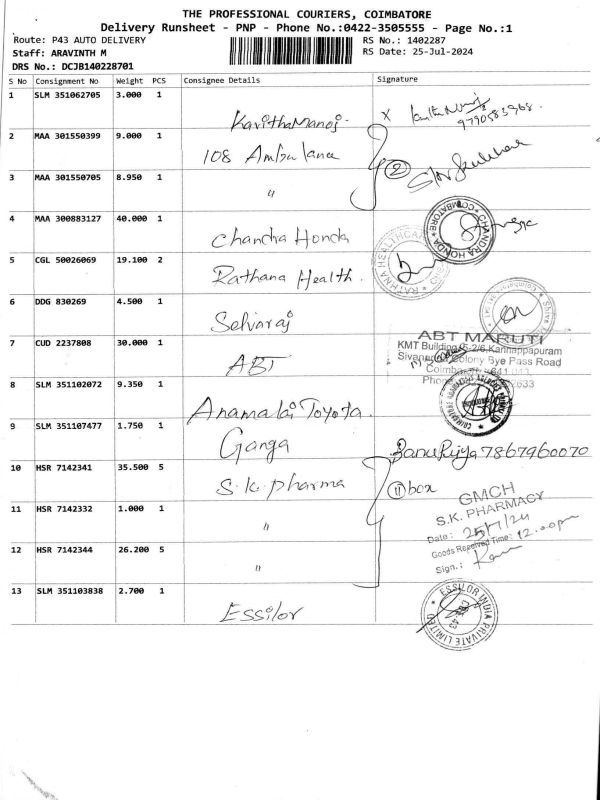 THE PROFESSIONAL COURIERS, COIMBATORE
Delivery Runsheet - PNP - Phone No.:0422-3505555 - Page No.:1
Route: P43 AUTO DELIVERY RS No.: 1402287
Staff: ARAVINTH M RS Date: 25-Jul-2024
DRS No.: DCJB140228701
S No Consignment No Weight PCS Consignee Details Signature
1 SLM 351062705 3.000 1 Kavitha Manoj X
9790583968.
2 MAA 301550399 9.000 1 108 Ambulance 2
3 MAA 301550705 8.950 1 "
4 MAA 300883127 40.000 1 Chandra Honda CHANDRA HONDA COIMBATORE
5 CGL 50026069 19.100 2 Rathana Health. RATHNA HEALTHCARE
6 DDG 830269 4.500 1 Selvaraj
7 CUD 2237808 30.000 1 ABT ABT MARUTI
KMT Building, Kannappapuram
Colony Bye Pass Road
8 SLM 351102072 9.350 1 Anamalai Toyota.
9 SLM 351107477 1.750 1 Ganga Banu Priya 7867960070
10 HSR 7142341 35.500 5 S.K. pharma 11 box
GMCH
S.K. PHARMACY
11 HSR 7142332 1.000 1 " Date: 25/7/24
Goods Received Time: 12.00pm
12 HSR 7142344 26.200 5 " Sign.:
13 SLM 351103838 2.700 1 Essilor ESSILOR INDIA PRIVATE LIMITED